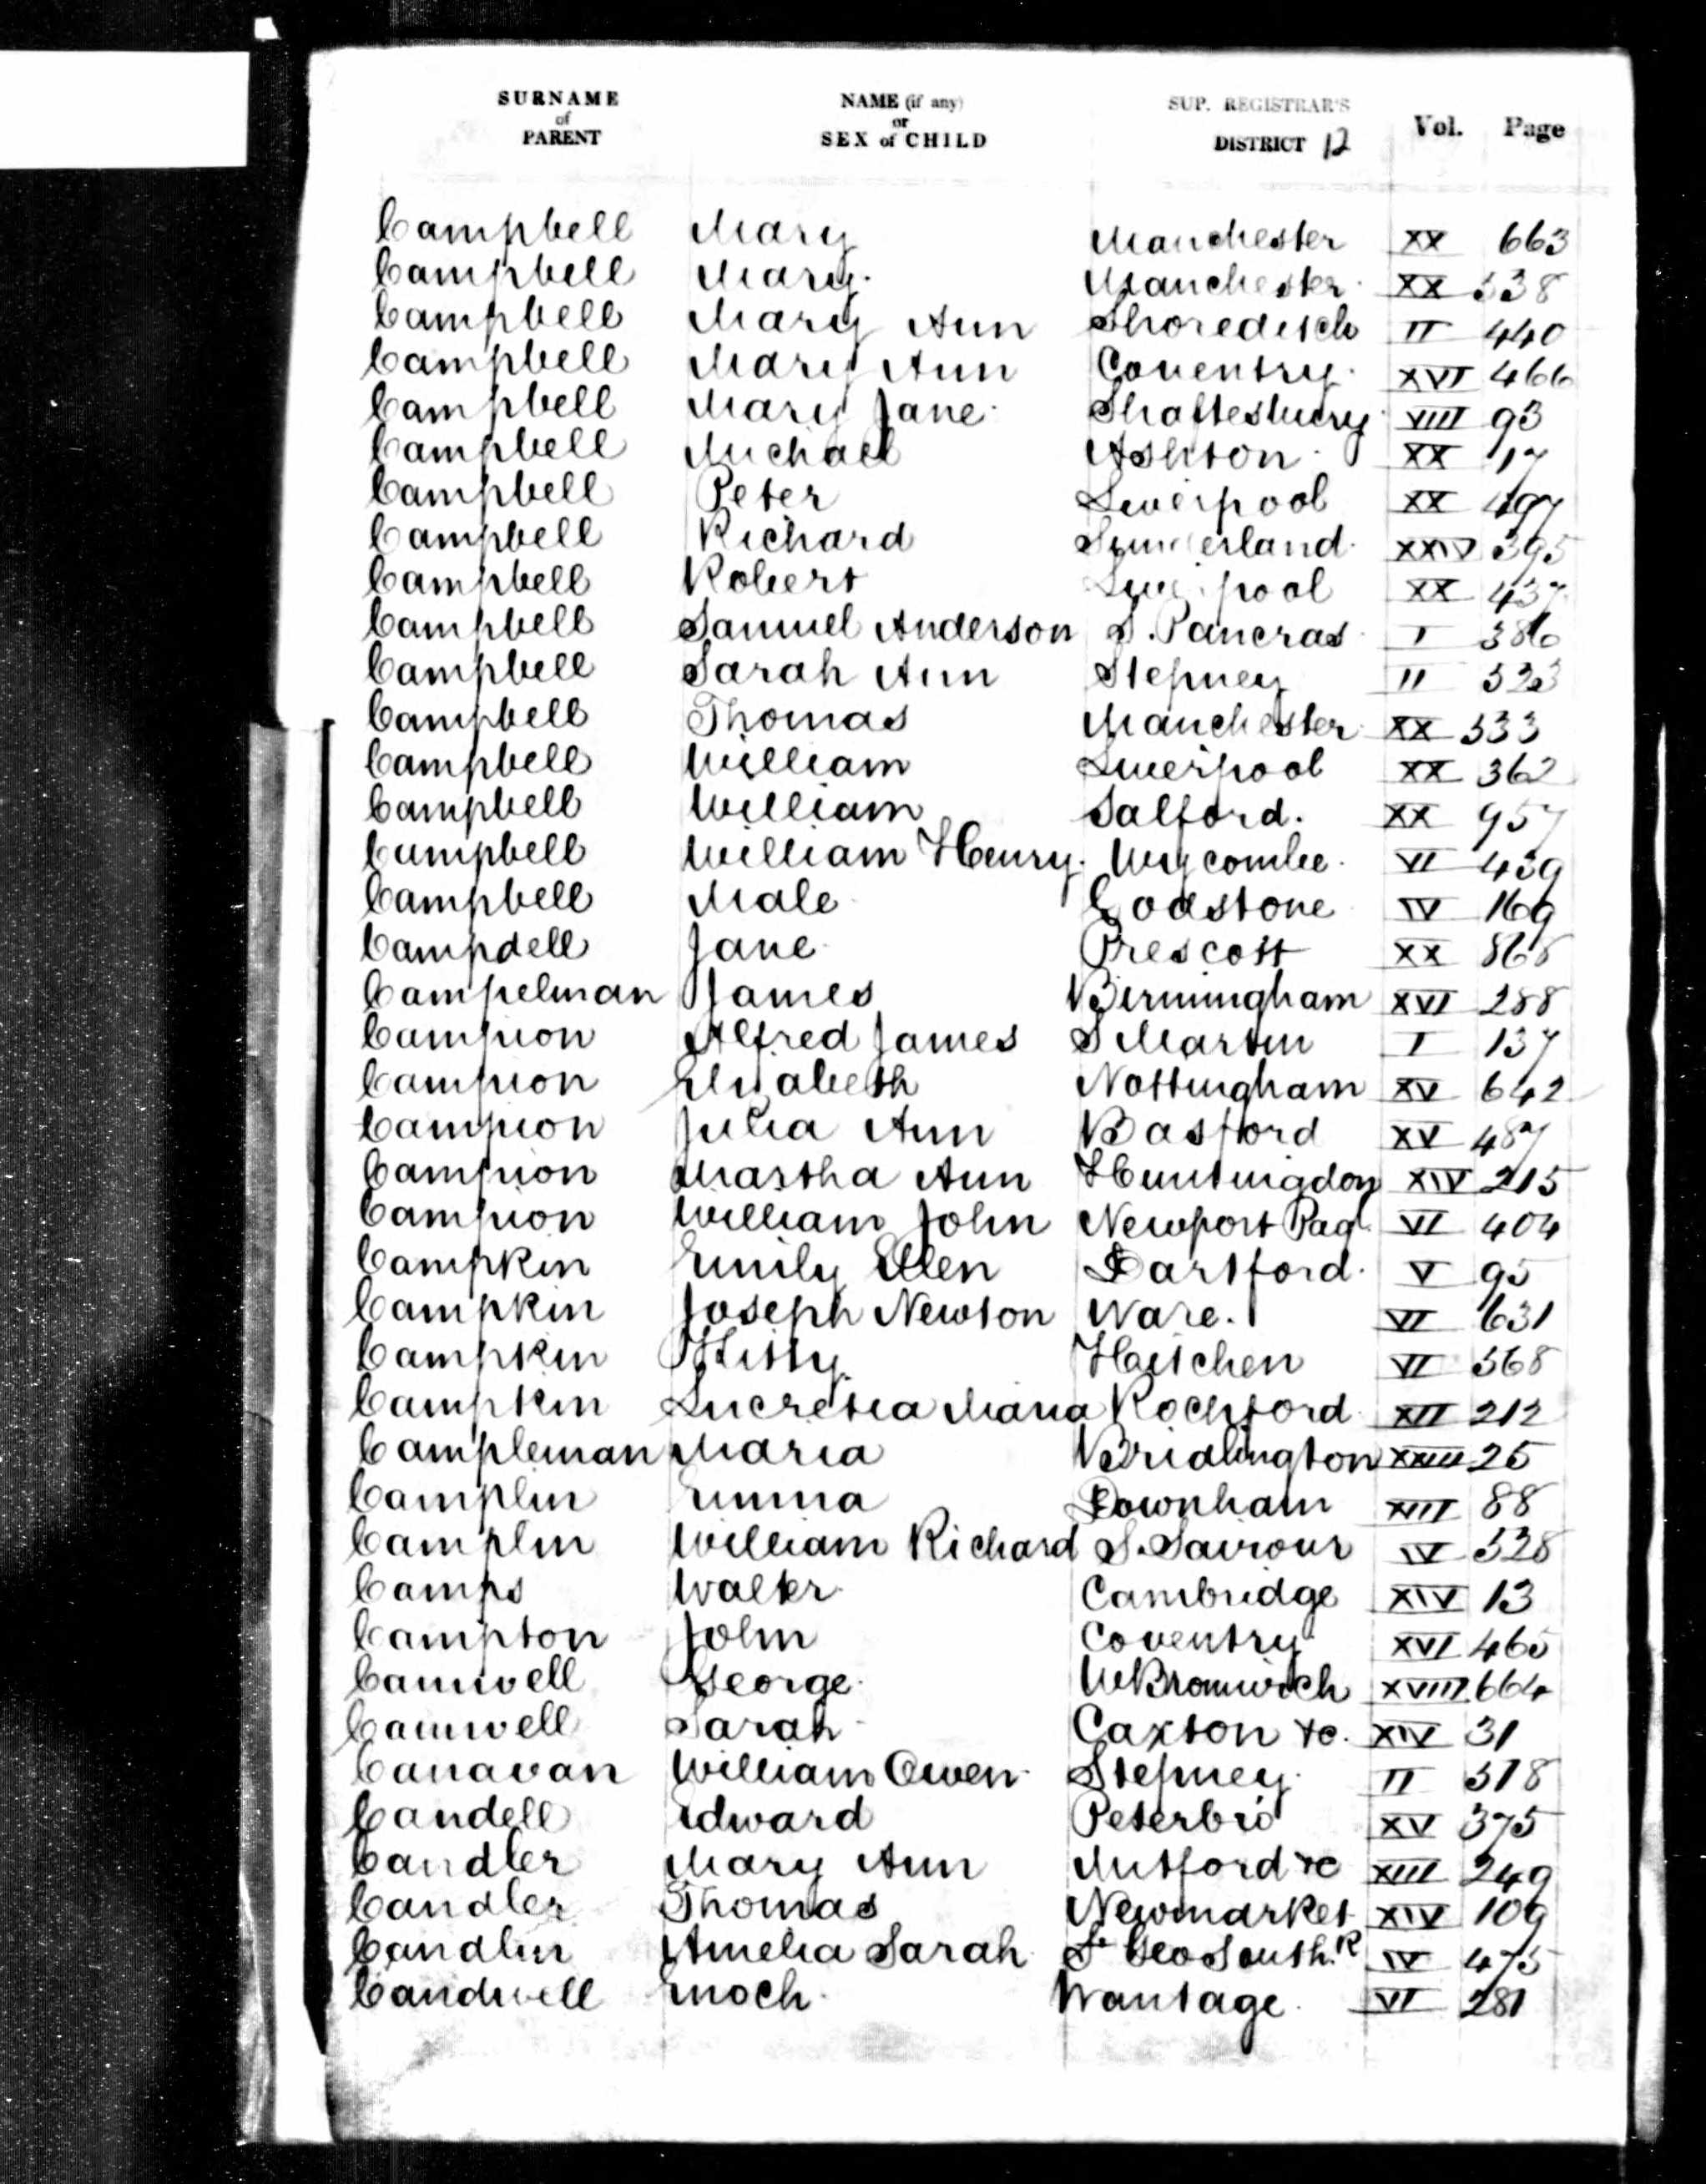 SURNAME of PARENT NAME (if any) or SEX of CHILD SUP. REGISTRAR'S DISTRICT 12 Vol. Page
Campbell Mary Manchester XX 663
Campbell Mary. Manchester XX 538
Campbell Mary Ann Shoreditch II 440
Campbell Mary Ann Coventry. XVI 466
Campbell Mary Jane Shaftesbury VIII 93
Campbell Michael Ashton XX 17
Campbell Peter Liverpool XX 497
Campbell Richard Sunderland XXIV 395
Campbell Robert Liverpool XX 437
Campbell Samuel Anderson S. Pancras I 386
Campbell Sarah Ann Stepney II 523
Campbell Thomas Manchester XX 533
Campbell William Liverpool XX 362
Campbell William Salford. XX 957
Campbell William Henry. Wycombe VI 439
Campbell Male Godstone IV 169
Campdell Jane Prescott XX 868
Campelman James Birmingham XVI 288
Campion Alfred James S Martin I 137
Campion Elizabeth Nottingham XV 642
Campion Julia Ann Basford XV 487
Campion Martha Ann Huntingdon XIV 215
Campion William John Newport Pag. VI 404
Campkin Emily Ellen Dartford. V 95
Campkin Joseph Newton Ware. VI 631
Campkin Kitty Hitchen VI 568
Campkin Lucretia Maria Rochford XII 212
Campleman Maria Bridlington XXIII 25
Camplin Emma Downham XIII 88
Camplin William Richard S. Saviour IV 528
Camps Walter Cambridge XIV 13
Campton John Coventry XVI 465
Camwell George W Bromwich XVIII 664
Camwell Sarah Caxton &c. XIV 31
Canavan William Owen Stepney. II 518
Candell Edward Peterbro' XV 375
Candler Mary Ann Mutford &c XIII 249
Candler Thomas Newmarket XIV 109
Candlin Amelia Sarah St Geo Southk IV 475
Candwell Enoch Wantage VI 281